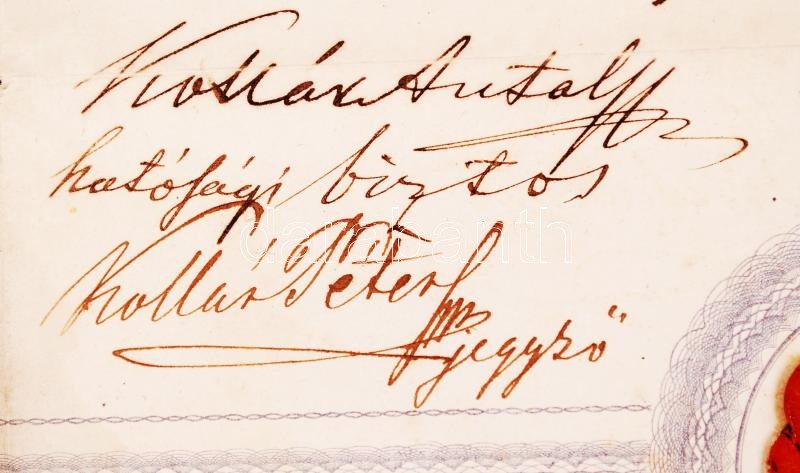 Kollár Antal
hatósági biztos
Kollár Péter
jegyző
darabanth